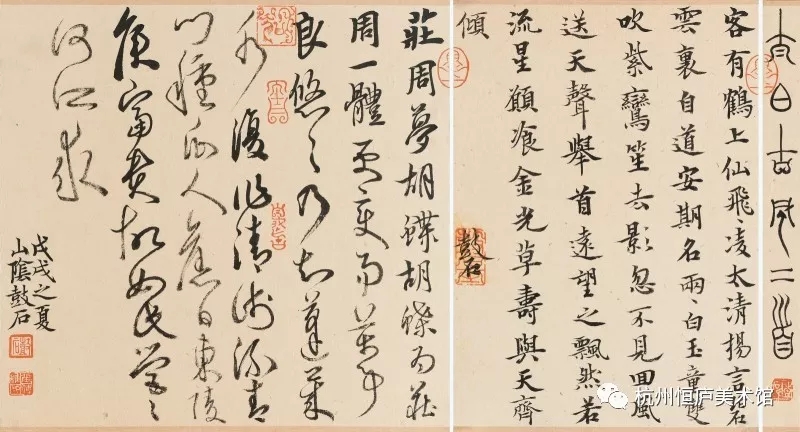 太白古風二首
客有鶴上仙飛凌太清揚言碧
雲裏自道安期名兩〻白玉童雙
吹紫鸞笙去影忽不見回風
送天聲舉首遠望之飄然若
流星願飱金光草壽與天齊
傾
鼓石
莊周夢胡蝶胡蝶為莊
周一體更變易萬事
良悠〻乃知蓬萊
水復作清淺流青
門種瓜人舊日東陵
侯富貴故如此營〻
何所求
戊戌之夏
山陰鼓石
杭州恒庐美术馆